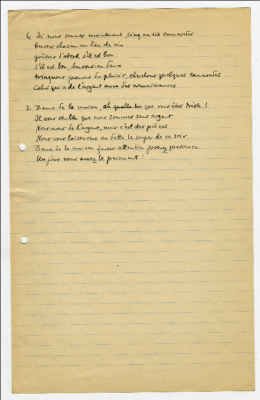 6) Ici nous sommes maintenant cinq ou six camarades
buvons chacun un peu de vin
goûtons d'abord s'il est bon
s'il est bon, buvons en deux
trinquons prenons du plaisir, cherchons quelques camarades
Celui qui a de l'argent aura des connaissances
7. Dame de la maison, que vous êtes triste !
Il vous semble que nous sommes sans argent
Nous avons de l'argent, mais c'est des pièces
Nous vous laisserons en le souper de ce soir
Dame de la maison faisons attention prenez patience
Un jour vous aurez le paiement !